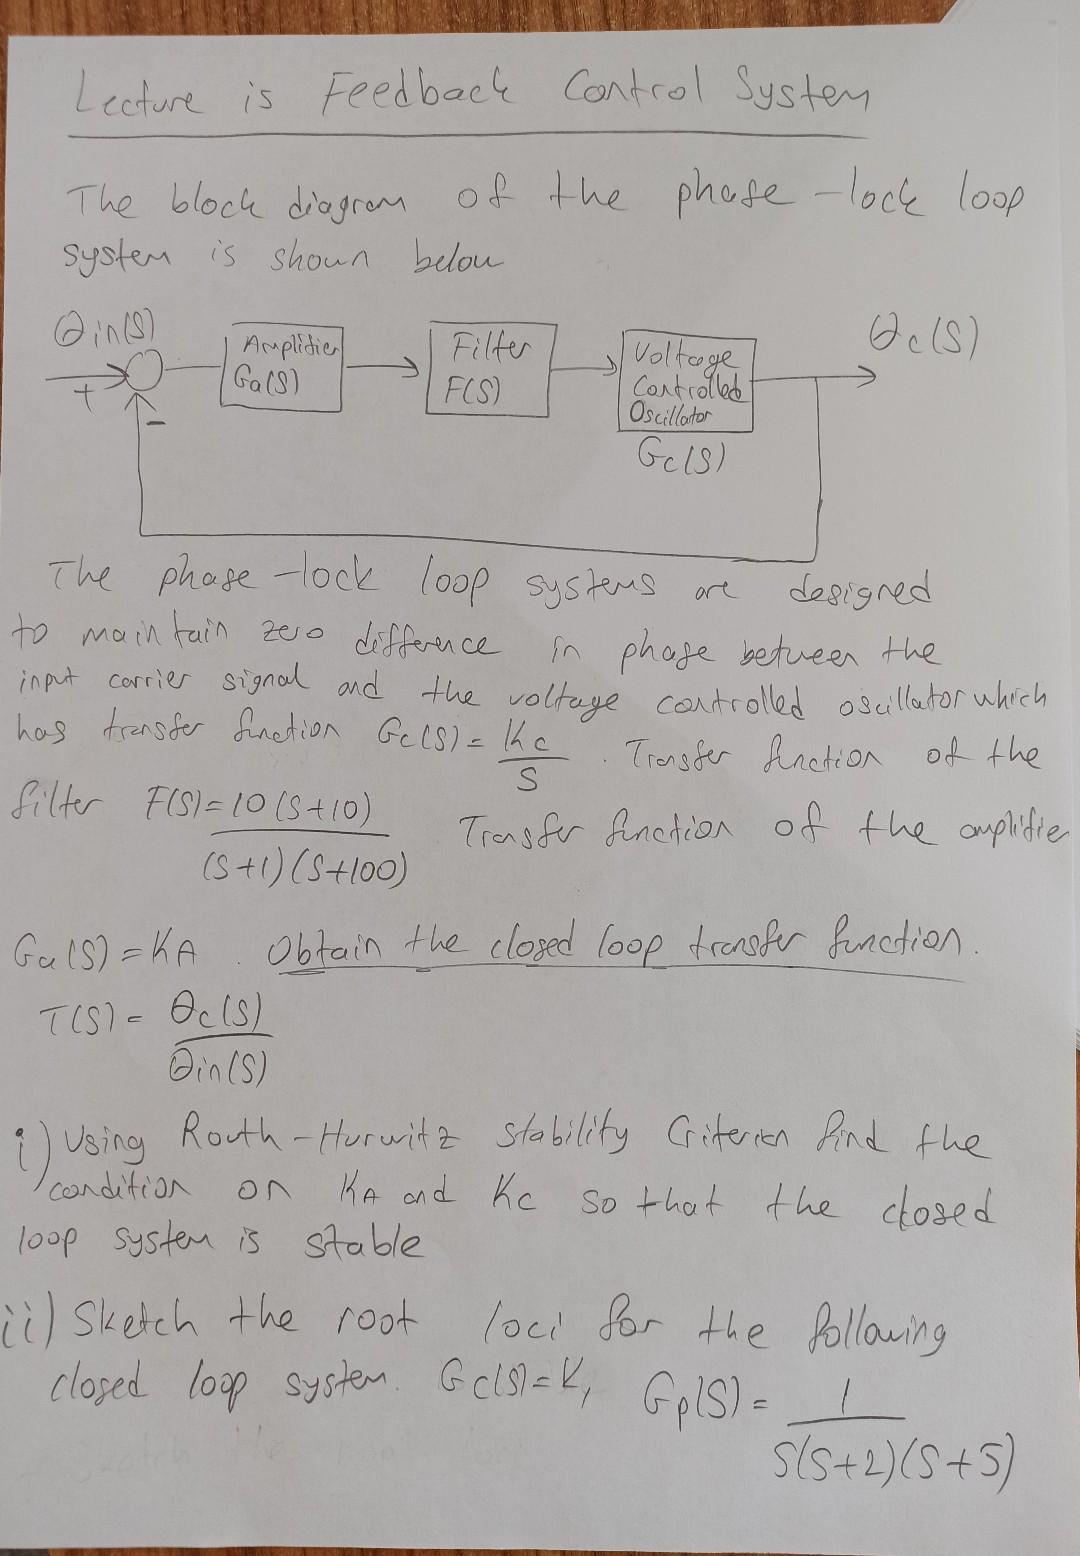 Lecture is Feedback Control System
The block diagram of the phase-lock loop
system is shown below
θin(s)
+
-
Amplifier
Ga(s)
Filter
F(s)
Voltage
Controlled
Oscillator
Gc(s)
θc(s)
The phase-lock loop systems are designed
to maintain zero difference in phase between the
input carrier signal and the voltage controlled oscillator which
has transfer function Gc(s) = Kc/s . Transfer function of the
filter F(s) = 10(s+10)/(s+1)(s+100) Transfer function of the amplifier
Ga(s) = KA . Obtain the closed loop transfer function.
T(s) = θc(s)/θin(s)
i) Using Routh-Hurwitz stability Criterien find the
condition on KA and Kc so that the closed
loop system is stable
ii) Sketch the root loci for the following
closed loop system. Gc(s) = K, Gp(s) = 1/s(s+2)(s+5)